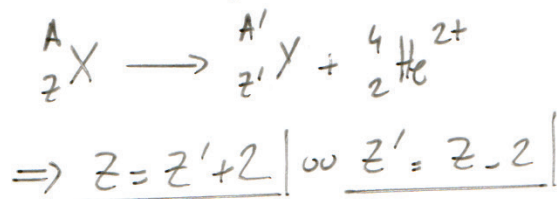 $^{A}_{Z}X \longrightarrow ^{A'}_{Z'}Y + ^{4}_{2}He^{2+}$
$\Rightarrow Z = Z' + 2 | oo Z' = Z - 2 |$